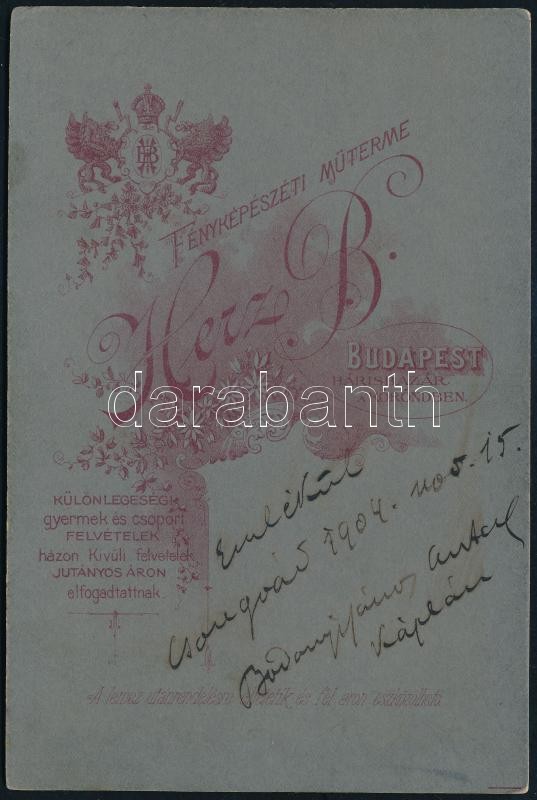 FÉNYKÉPÉSZETI MŰTERME
Herz B.
BUDAPEST
HÁRIS BAZÁR
KÖRÖNDBEN.
darabanth
KÜLÖNLEGESÉGI
gyermek és csoport
FELVÉTELEK
házon Kívüli felvételek
JUTÁNYOS ÁRON
elfogadtattnak.
Emlékül
Csongrád 1904. nov. 15.
Antal
Káplán
A lemez utánrendelésre és fél áron eszközölhető.